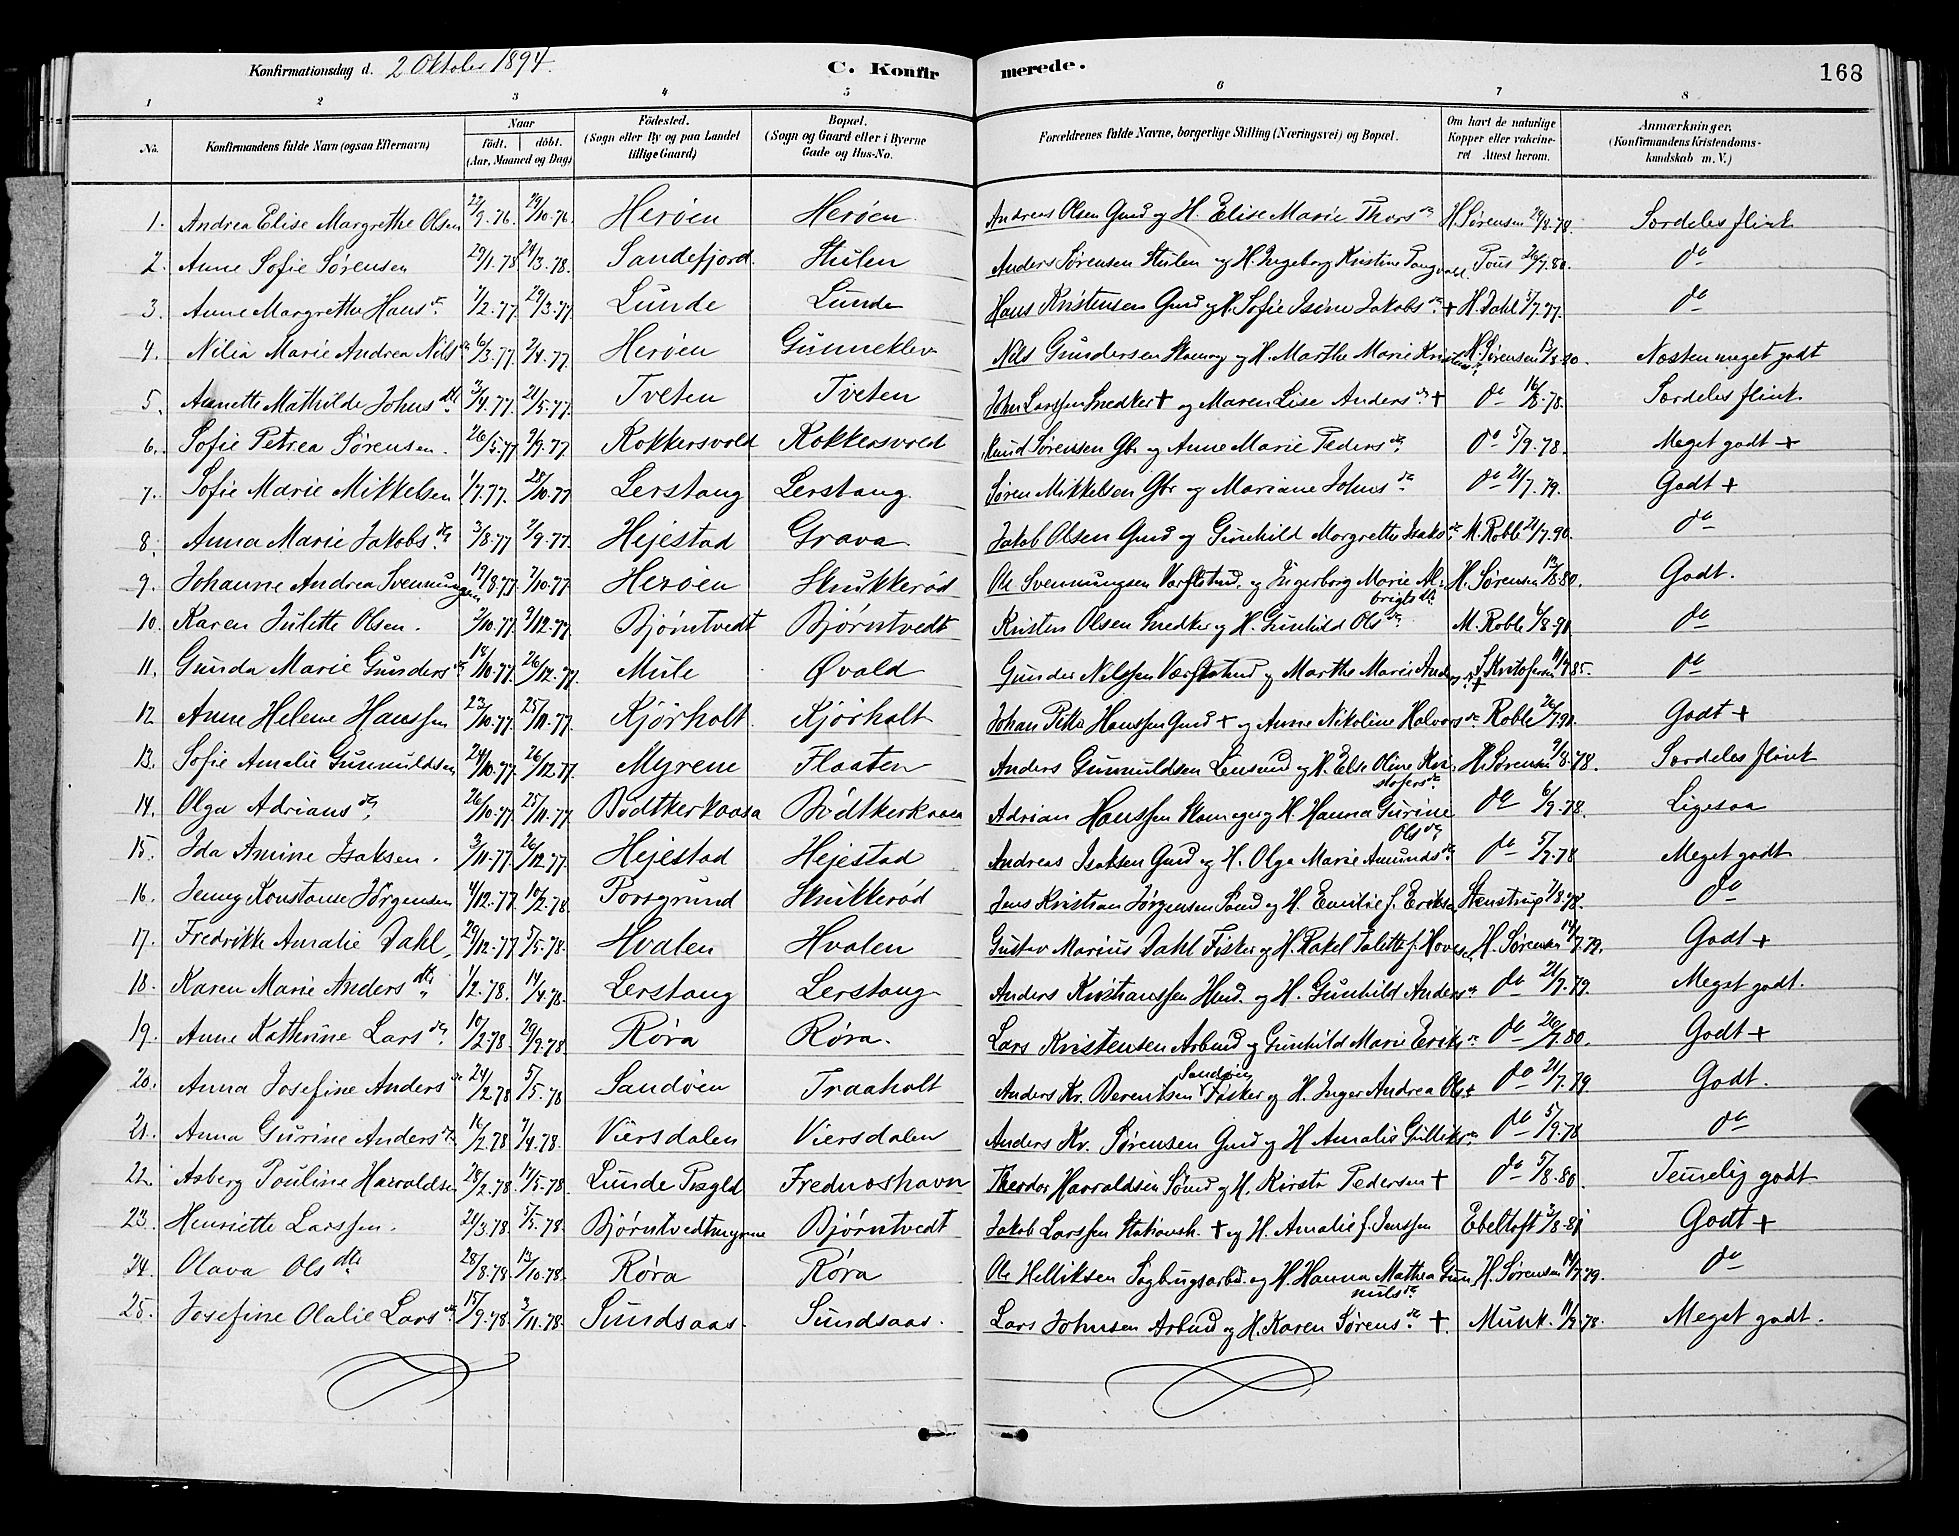 Konfirmationsdag d. 2 Oktober 1894. C. Konfirmerede. 168
1 2 3 4 5 6 7 8
No. Konfirmandens fulde Navn (ogsaa Efternavn) Naar født. døbt. (Aar, Maaned og Dag) Fødested. (Sogn eller By og paa Landet tillige Gaard) Bopæl. (Sogn og Gaard eller i Byerne Gade og Hus-No. Forældrenes fulde Navne, borgerlige Stilling (Næringsvei) og Bopæl. Om havt de naturlige Kopper eller vakcineret Attest herom. Anmærkninger. (Konfirmandens Kristendomskundskab m. V.)
1. Andrea Elise Margrethe Olsen 29/10.76 Herøen Herøen Andreas Olsen Gmd og H. Elise Marie Thors dtr H. Sørensen Særdeles flink
2. Anne Sofie Sørensen 29/1.78 24/3.78. Sandefjord. Stulen Anders Sørensen Stulen og H. Ingeborg Kristine 26/7.80. do
3. Anne Margrethe Hans dr. 1/2.77 29/3.77 Lunde Lunde Hans Kristensen Gmd og H. Sofie Isine Jakobs dr + H. Dahl 5/7.77. do
4. Nilia Marie Andrea Nils dr 6/3.77. 2/4.77 Herøen Gunneklev Nils Gundersen og H. Marthe Marie H. Sørensen 13/8.80. Næsten meget godt
5. Annette Mathilde Johns dtr. 3/4.77. 21/5.77. Tveten Tveten John Larssen Snedker + og Maren Lise Anders dr + do 16/8.78. Særdeles flink.
6. Sofie Petrea Sørensen. 26/5.77 2/9.77 Kokkersvold Kokkersvold Knud Sørensen Gbr og Anne Marie Peders dr do 5/9.78. Meget godt +
7. Sofie Marie Mikkelsen 1/7.77. 28/10.77 Lerstang Lerstang. Søren Mikkelsen Gbr og Mariane Johns dr do 21/7.79. Godt +
8. Anna Marie Jakobs dr 3/8.77 2/9.77. Hejestad Grava Jakob Olsen Gmd og Gunhild Margrethe Isaks dr M. Roble 21/7.90. do
9. Johanne Andrea Svennungsen 19/8.77 7/10.77 Herøen Skrukkerød Ole Svennungsen Værftstmd. og Ingerborg Marie Albrigts dtr. H. Sørensen 13/8.80. Godt.
10. Karen Julette Olsen. 7/10.77 9/12.77 Bjørntvedt Bjørntvedt Kristen Olsen Snedker og H. Gunhild Ols dr M. Roble 6/8.90 do
11. Gunda Marie Gunders dr 18/10.77. 26/12.77. Mule Øvald Gunder Nilssen Værftstmd og Marthe Marie Anders + do
12 Anne Helene Hanssen 23/10.77. 25/11.77 Kjørholt. Kjørholt Johan Petter Hanssen Gmd + og Anne Nikoline Halvors dr Roble Godt +
13. Sofie Amalie Gunnuldsen 24/10.77 26/12.77. Myrene Flaaten Anders Gunnuldsen og H. Else Oline Kristofers dr H. Sørensen 9/8.78. Særdeles flink
14. Olga Adrians dr 26/10.77 25/11.77. Bødtkerkaasa Bødtkerkaasa Adrian Hanssen og H. Hanna Gurine Ols dr do 6/9.78. Ligesaa
15. Ida Amine Isaksen. 3/11.77. 26/12.77. Hejestad Hejestad Andreas Isaksen Gmd og H. Olga Marie Amunds dr do 5/7.78 Meget godt
16. Jenny Konstanse Jørgensen 4/12.77. 10/2.78. Porsgrund Skrukkerød Jens Kristian Jørgensen Sømd og H. Emilie f. Eriksen Stenstrup 7/8.78. do
17. Fredrikke Amalie Dahl 29/12.77 5/5.78. Hvalen Hvalen Gustav Marius Dahl Fisker og H. Rakel f. H. Sørensen 14/7.79. Godt +
18. Karen Marie Anders dtr. 1/2.78. 14/4.78. Lerstang Lerstang Anders Kristianssen Hmd. og H. Gunhild Anders dr do 21/7.79. Meget godt.
19. Anne Kathrine Lars dr. 10/2.78. 29/9.78. Røra Røra. Lars Kristensen Arbmd og Gunhild Marie Eriks dr do 26/7.80. Godt +
20. Anna Josefine Anders dr 24/2.78 5/5.78 Sandøen Traaholt Anders Kr. Berentsen Sandøen Fisker og H. Inger Andrea Ols dr do 21/7.79 Godt.
21. Anna Gurine Anders dtr 16/2.78 7/4.78. Viersdalen Viersdalen Anders Kr. Sørensen Gmd og H Amalie Gulliks dr do 5/9.78 do
22. Asberg Pouline Harraldsen 28/2.78. 14/5.78. Lunde Prægld Fredriksharn Theodor Harraldsen Sømd og H. Kirste Pedersen + do 5/8.80. Temmelig godt
23. Henriette Larssen. 24/3.78. 5/5.78. Bjørntvedtmyrene Bjørntvedt Jakob Larssen + og H. Amalie f. Jenssen Ebeltoft 3/8.81 Godt +
24. Olava Ols dtr. 28/8.78. 13/10.78. Røra Røra Ole Helliksen Sagbrugsarbd. og H. Hanna Mathea Gunnuls dr H. Sørensen 14/7.79. do
25. Josefine Olalie Lars dr. 15/9.78. 3/11.78. Sundsaas. Sundsaas. Lars Johnsen Arbmd og H. Karen Sørens dr. +. Munk. Meget godt.